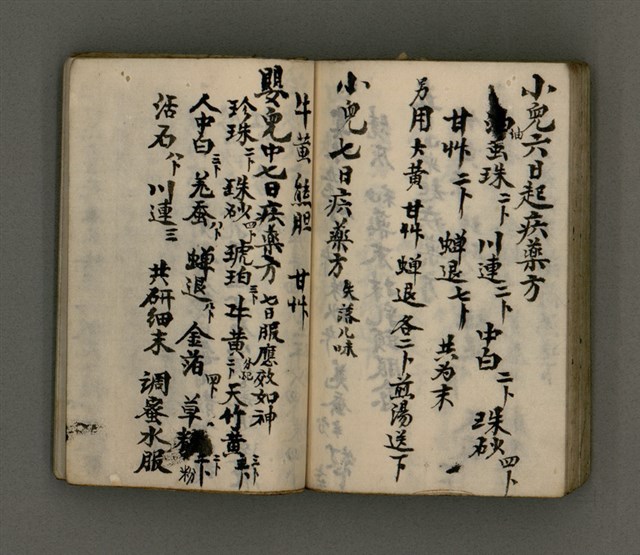 小兒六日起疾藥方
珠二卜 川連二卜 中白二卜 珠砂四卜
甘艸二卜 蟬退七卜 共為末
另用大黄 甘艸 蟬退 各二卜 煎湯送下
小兒七日疾藥方 失落几味
牛黄 熊胆 甘艸
嬰兒中七日疾藥方 七日服應效如神
珍珠二卜 珠砂四卜 琥珀三卜 牛黄二卜 天竹黄三卜
人中白三卜 羌蚕八卜 蟬退八卜 金箔四卜 草
活石八卜 川連三 共研細末 調蜜水服